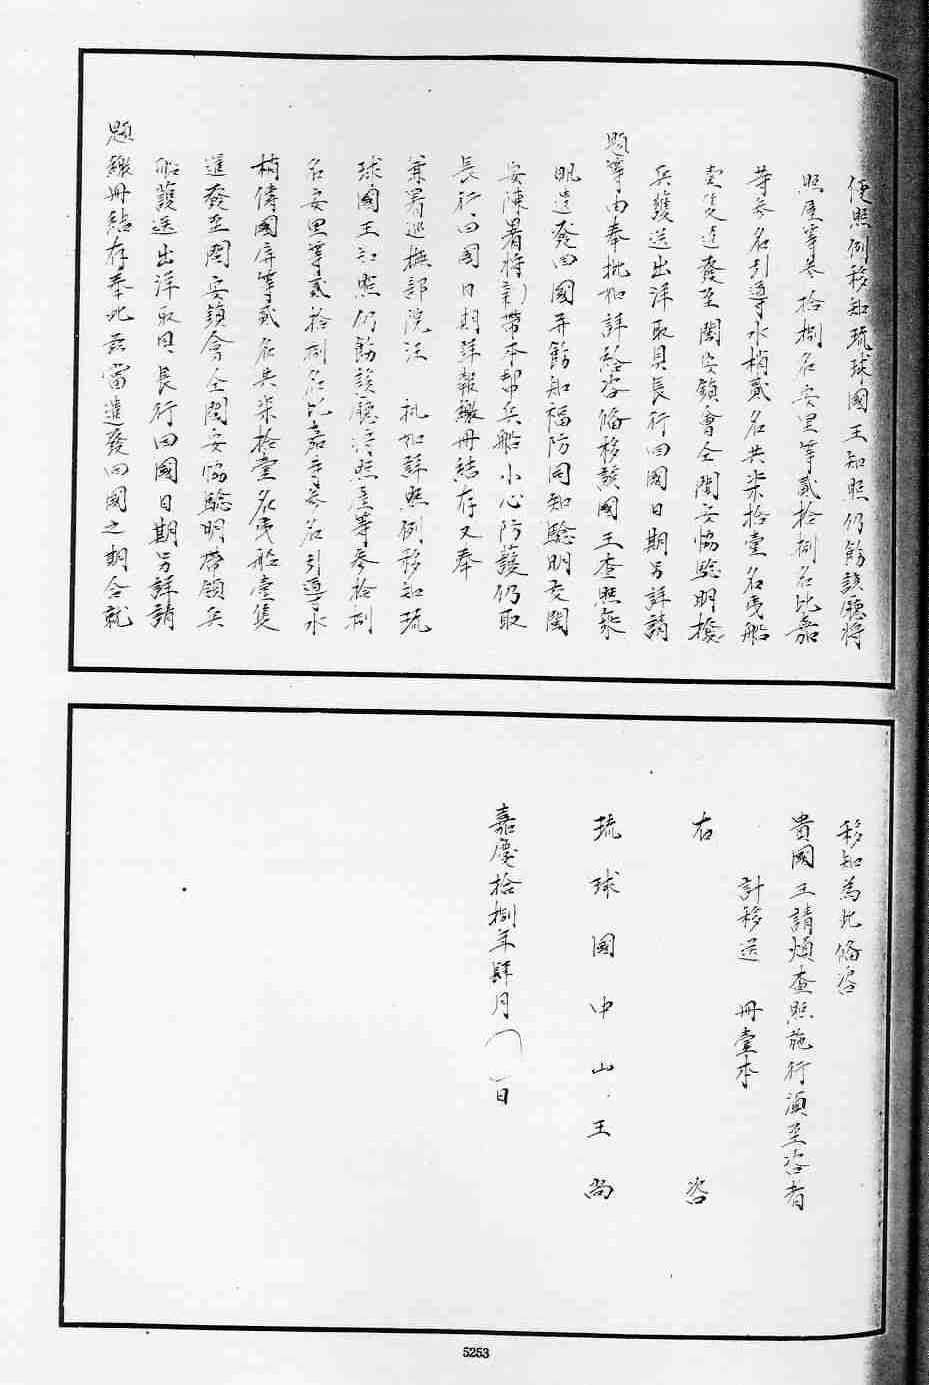 便照例移知琉球國王知照仍飭該廳將
照屋等叁拾捌名安里等貳拾捌名比嘉
等叁名引導水梢貳名共柒拾壹名夷船
壹隻逹發至閩安鎮會仝閩安協驗明撥
兵護送出洋取具長行回國日期另詳請
題等由奉批如詳給咨俻移該國王查照乘
帆遣發回國并飭知福防同知驗明交閩
安陳署將刻帶本幫兵船小心防護仍取
長行回國日期詳報繳冊結存又奉
兼署巡撫部院汪 批如詳照例移知琉
球國王知照仍飭該廳將照屋等參拾捌
名安里等貳拾捌名比嘉等叁名引導水
梢儔國屏等貳名共柒拾壹名夷船壹隻
進發至閩安鎮會仝閩安協驗明帶領兵
船護送出洋取具長行回國日期另詳請
題繳冊結存奉此茲當遣發回國之期合就
移知為此俻咨
貴國王請煩查照施行須至咨者
計移送 冊壹本
右 咨
琉球國中山王尚
嘉慶拾捌年肆月 日
5253